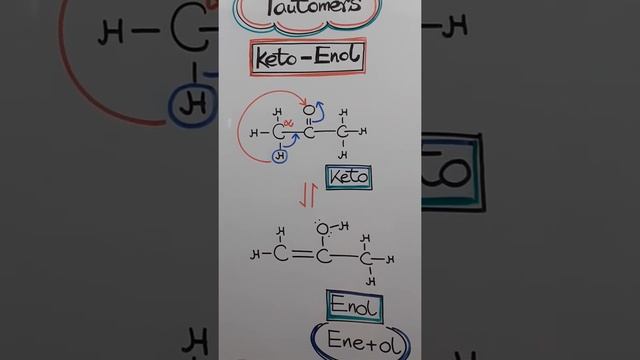 Tautomers
Keto-Enol
H O H
α
H-C-C-C-H
H H
Keto
⇌
H O-H H
H-C=C-C-H
H
Enol
Ene+ol